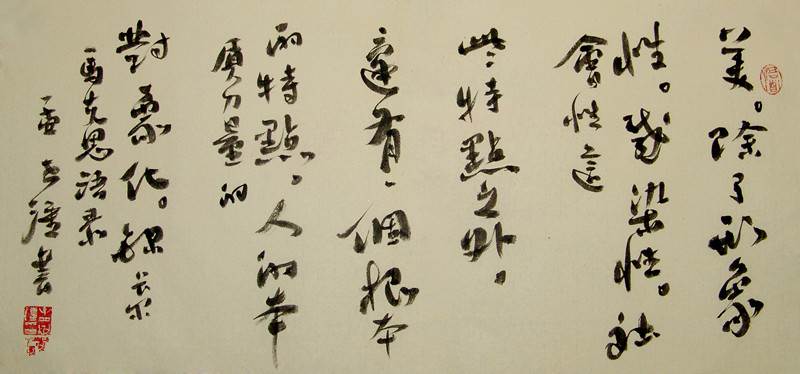 美。除了形象
性。感染性。社
會性這
些特點之外。
還有一個根本
的特點。人的本
質力量的
對象化。
馬克思語录
書